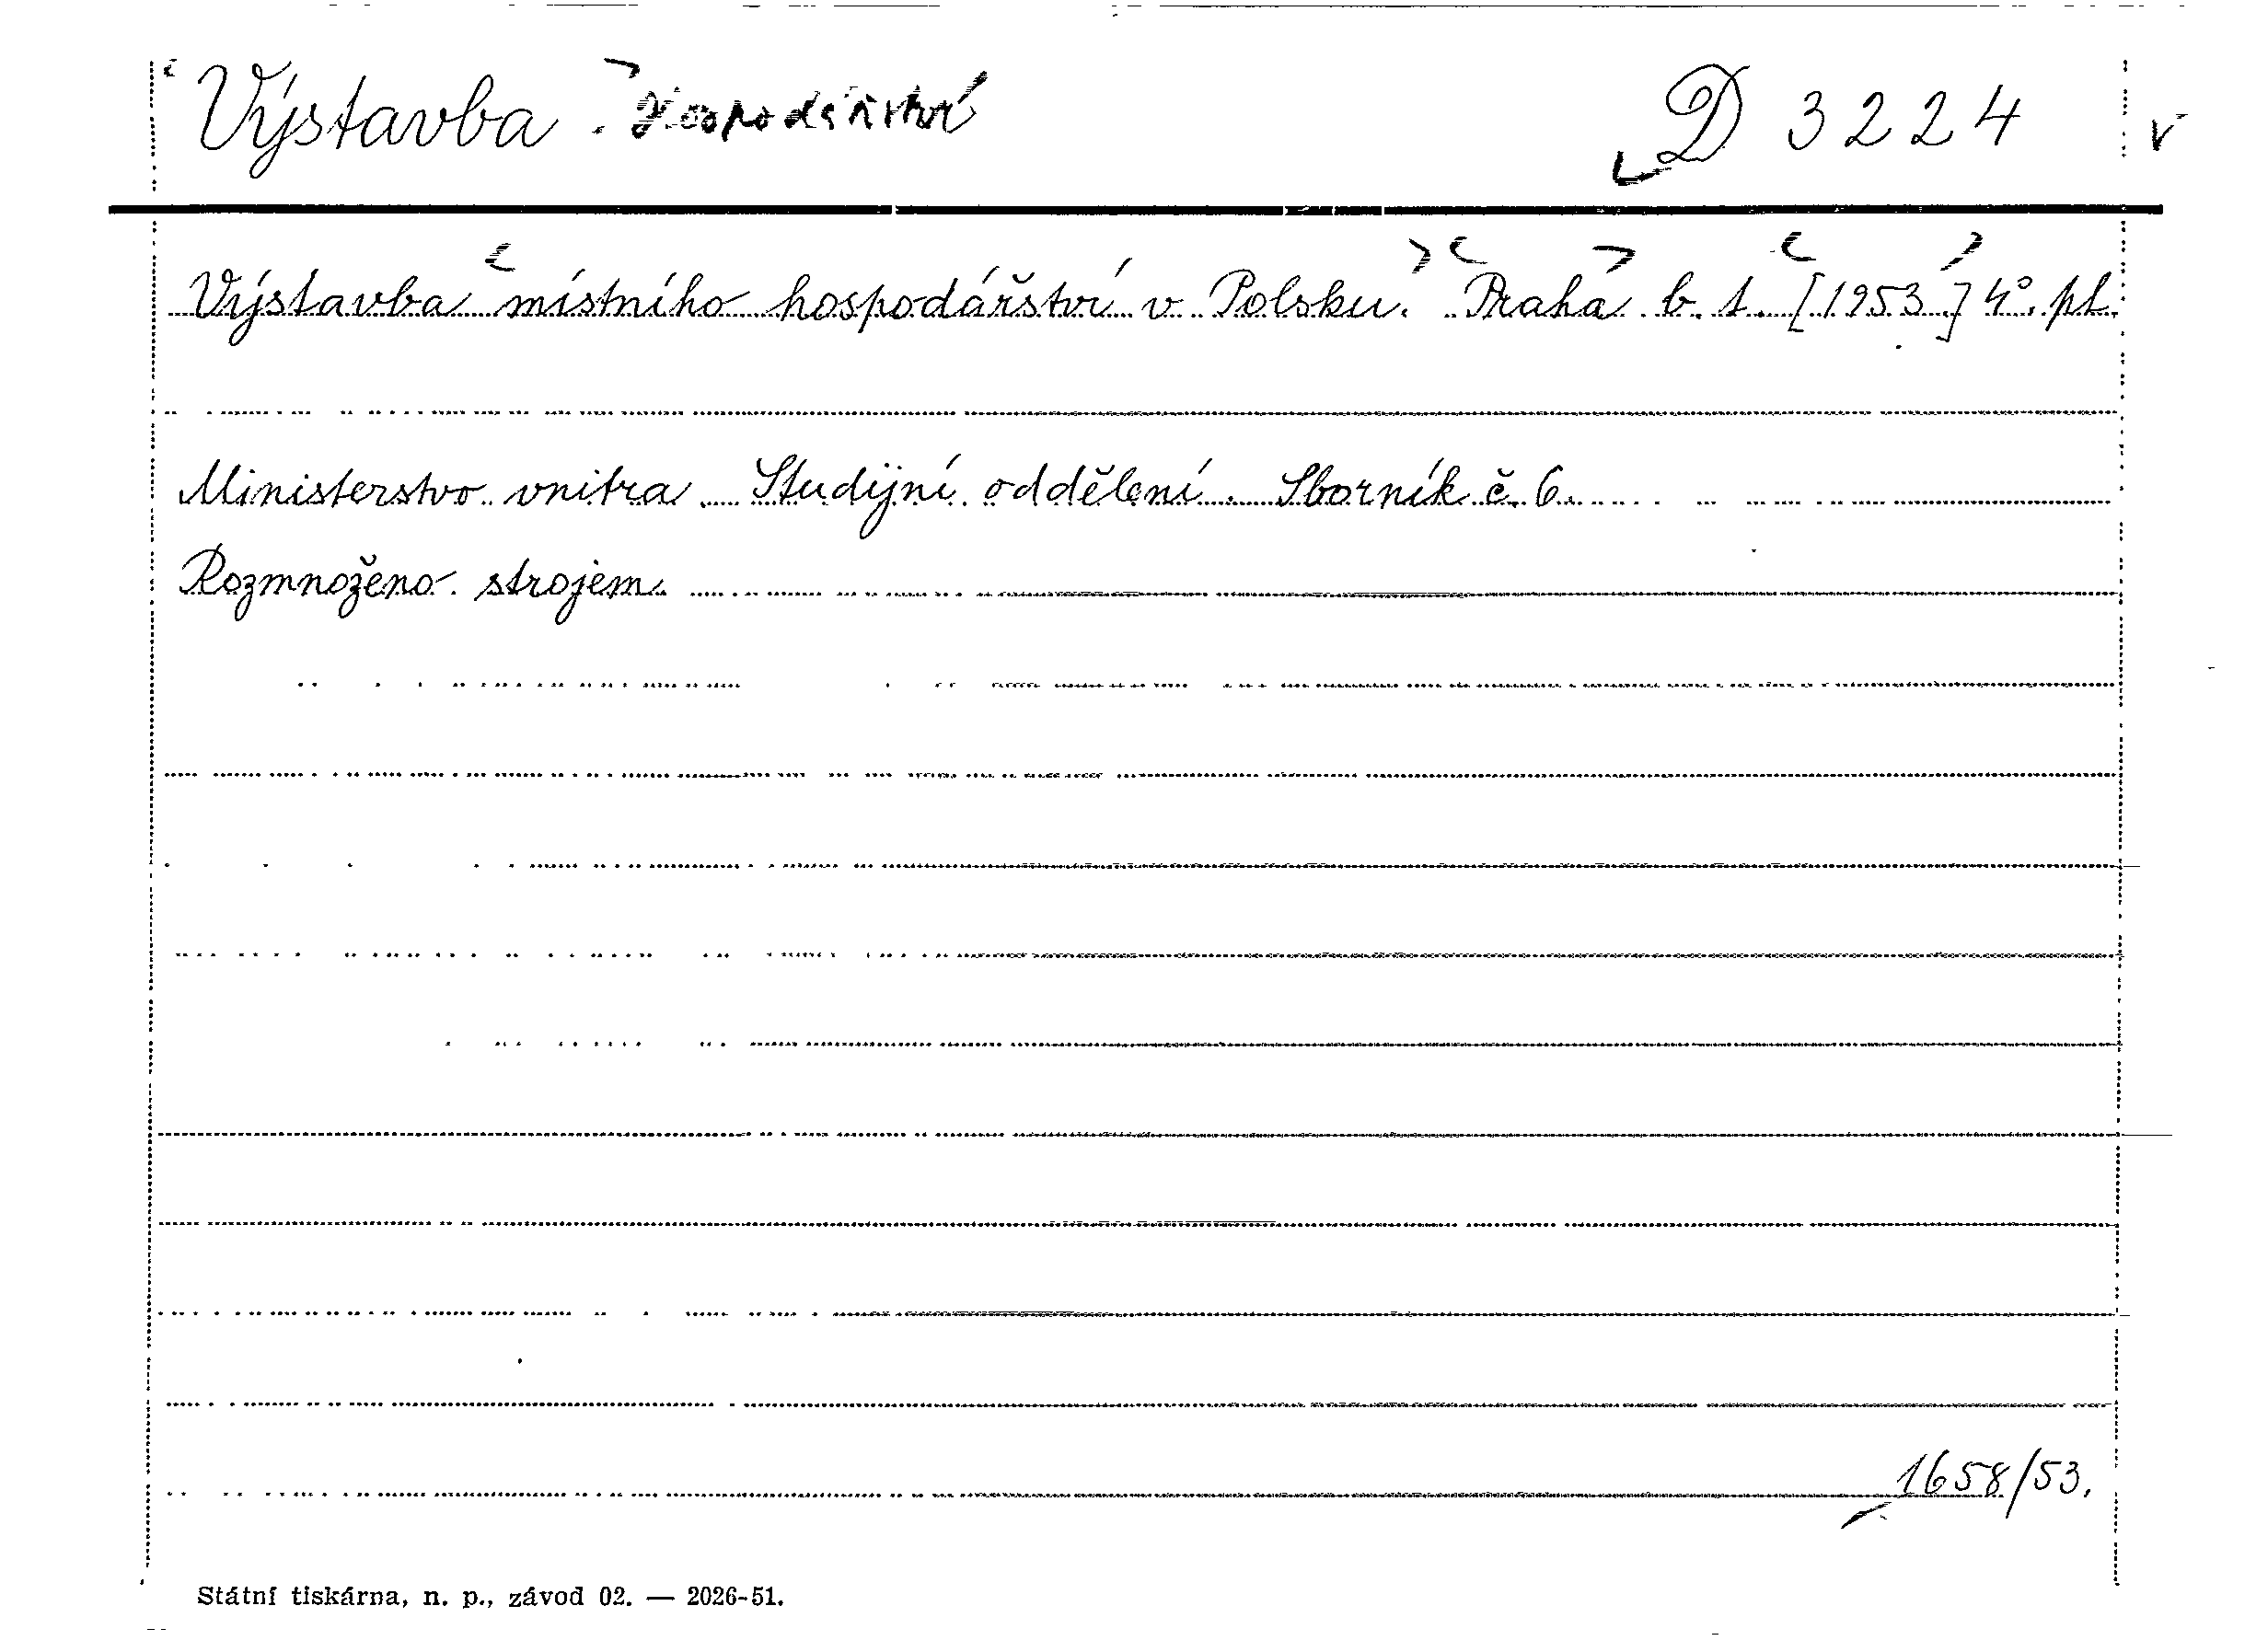 Výstavba. hospodářství D 3224 v
Výstavba místního hospodářství v Polsku. Praha b. t. [1953] 4°. pl.
Ministerstvo vnitra. Studijní oddělení. Sborník č. 6.
Rozmnoženo strojem.
1658/53.
Státní tiskárna, n. p., závod 02. — 2026-51.